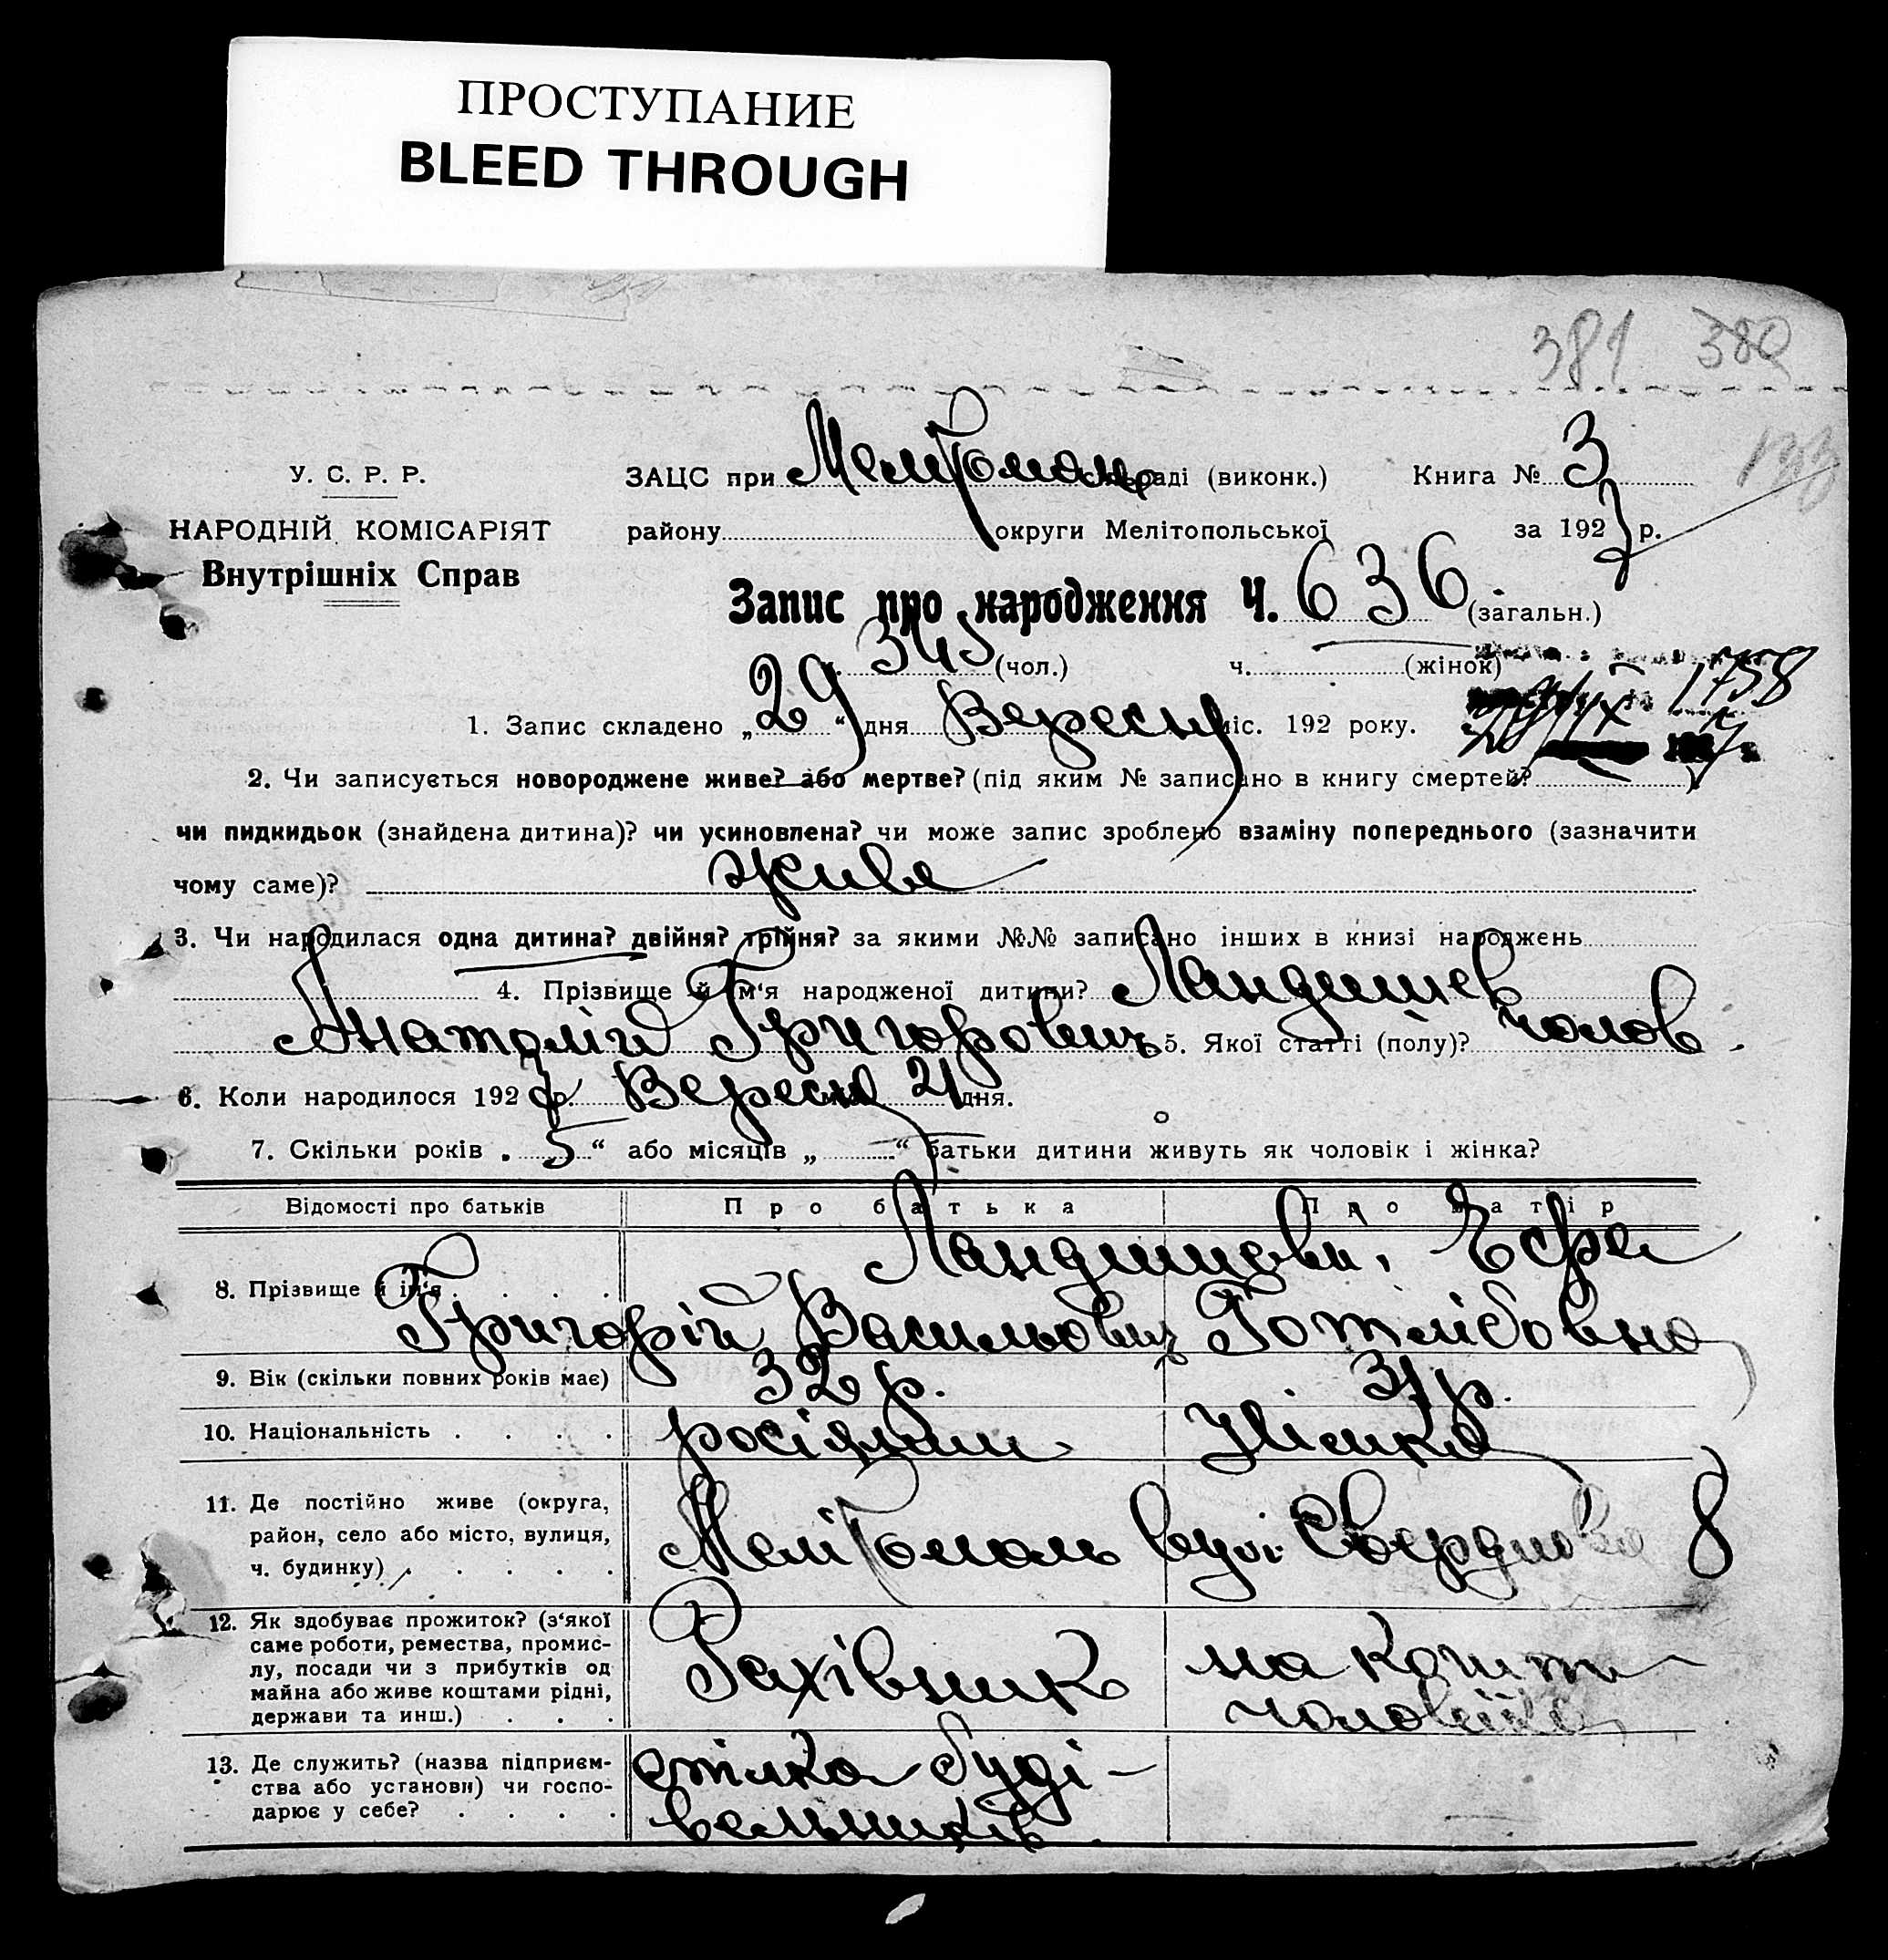 ПРОСТУПАНИЕ
BLEED THROUGH
381 380
133
У. С. Р. Р.
НАРОДНІЙ КОМІСАРІЯТ
Внутрішніх Справ
ЗАЦС при Мелітопол раді (виконк.) Книга № 3
району округи Мелітопольської за 1927 р.
Запис про народження Ч. 636 (загальн.)
343 (чол.) ч. (жінок)
1758
1. Запис складено „29“ дня Вересня міс. 192 року.
2. Чи записується новороджене живе? або мертве? (під яким № записано в книгу смертей? )
чи пидкидьок (знайдена дитина)? чи усиновлена? чи може запис зроблено взаміну попереднього (зазначити
чому саме)? живе
3. Чи народилася одна дитина? двійня? трійня? за якими №№ записано інших в книзі народжень
4. Прізвище й ім‘я народженої дитини? Ландишев
Анатолій Григорович 5. Якої статті (полу)? чолов.
6. Коли народилося 1927 р. Вересня 21 дня.
7. Скільки років „5“ або місяців „ “ батьки дитини живуть як чоловік і жінка?
Відомості про батьків Про батька Про матір
8. Прізвище й ім‘я . . . . Ландишеви,
Григорій Васильович Готлібовна
9. Вік (скільки повних років має) 32 р. 31 р.
10. Національність . . . . росіянин Німка
11. Де постійно живе (округа,
район, село або місто, вулиця,
ч. будинку) . . . . .
Мелітополь вул. Свердлова 8
12. Як здобуває прожиток? (з‘якої
саме роботи, ремества, промис-
лу, посади чи з прибутків од
майна або живе коштами рідні,
держави та инш.) . . .
Рахівник
на кошти
чоловіка
13. Де служить? (назва підприєм-
ства або установи) чи госпо-
дарює у себе? . . . .
спілка буді-
вельників